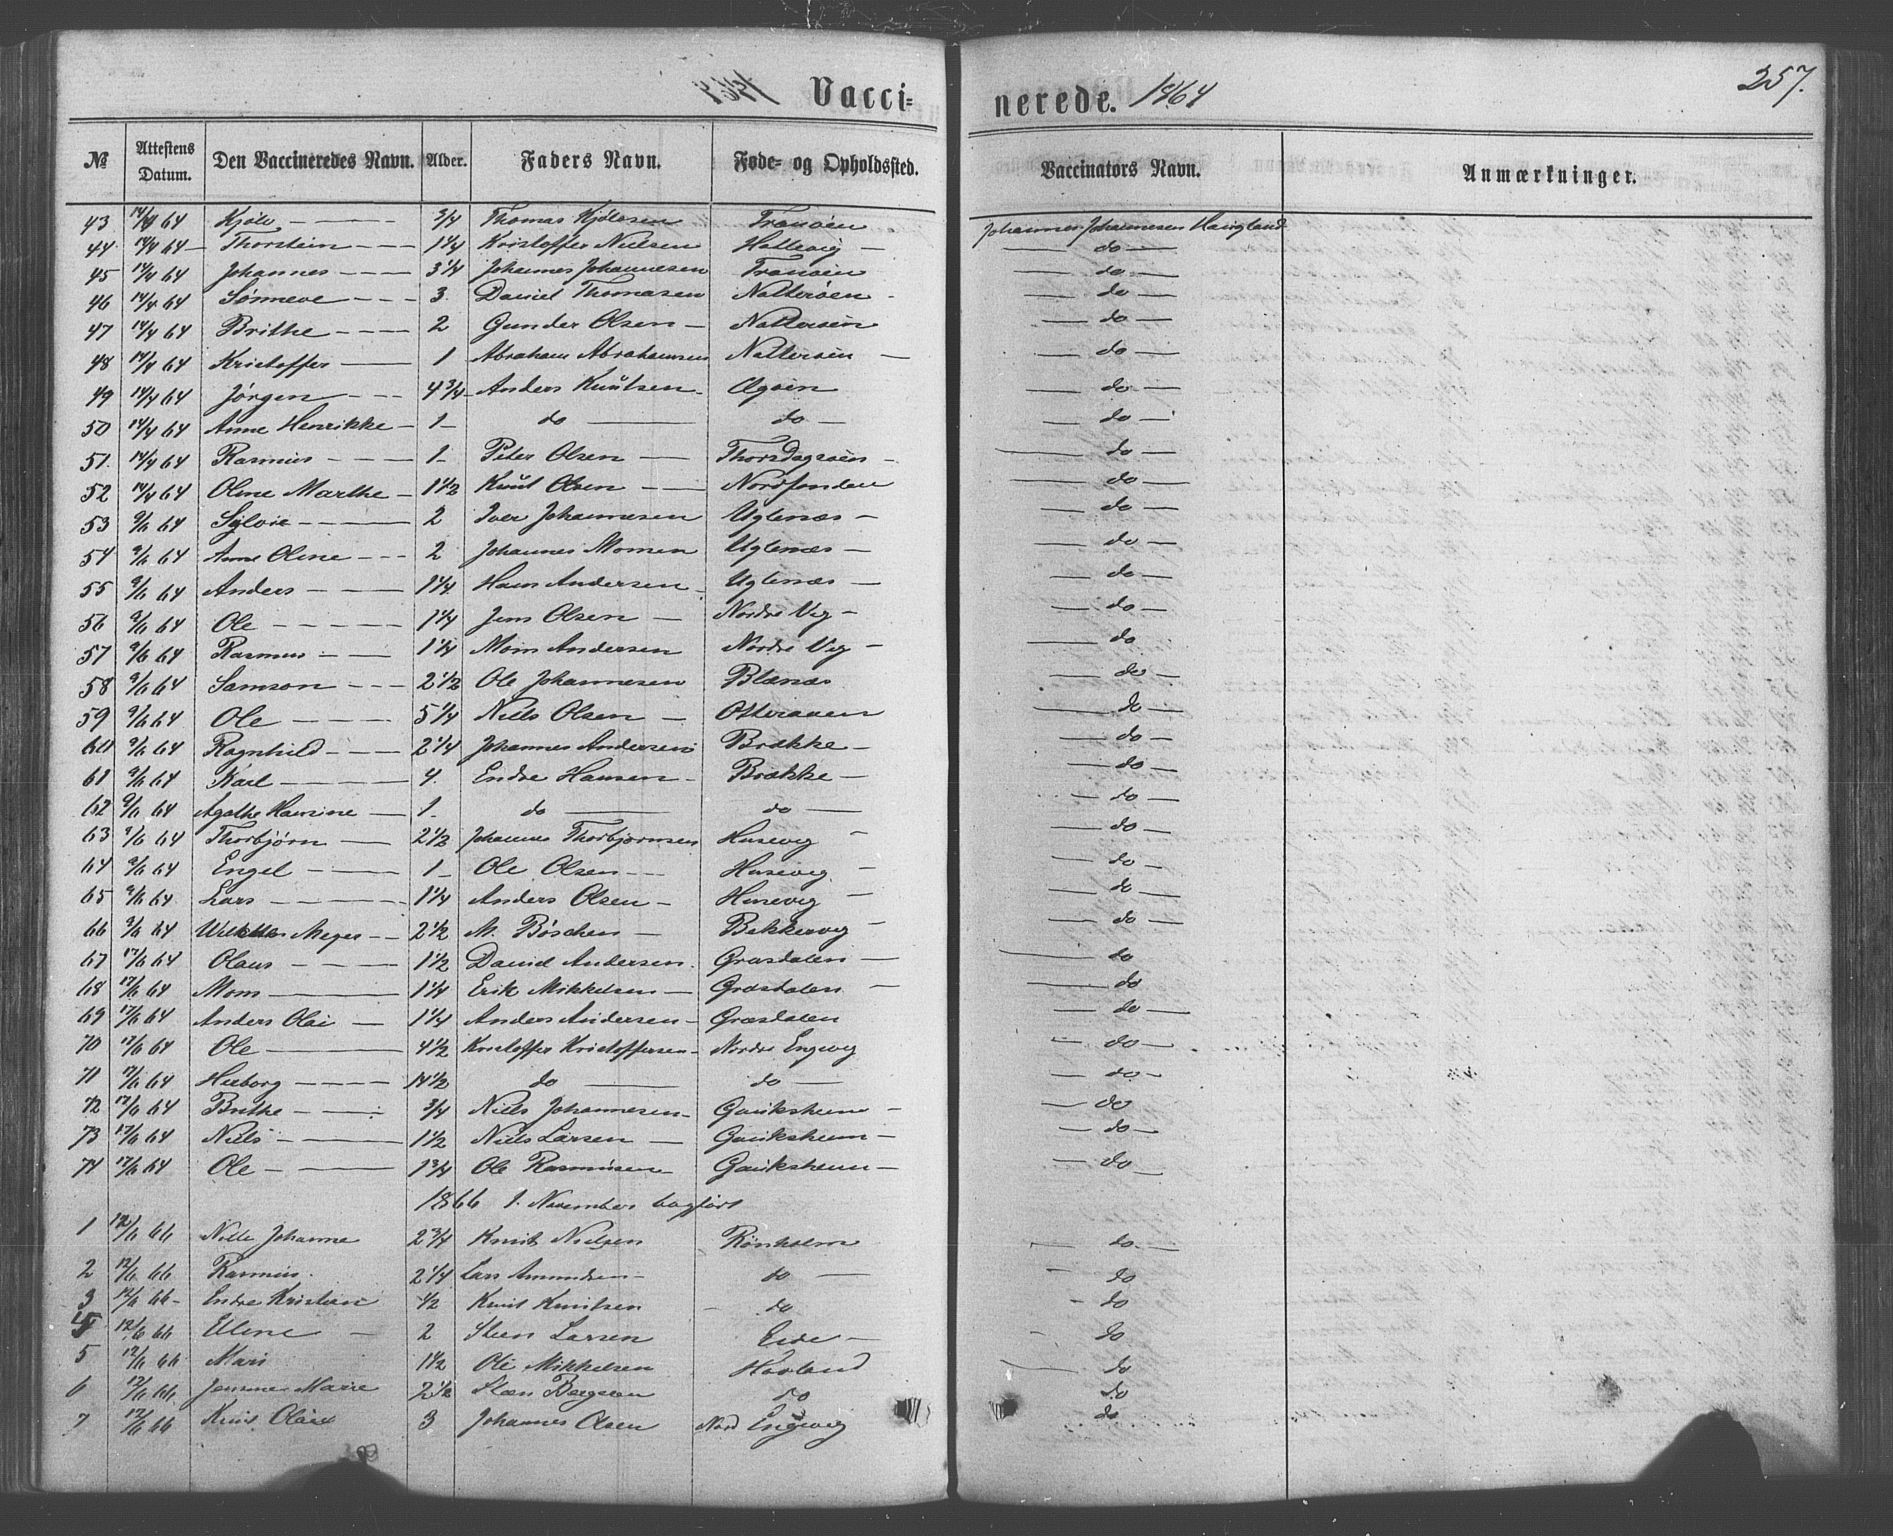 Vacci=
nerede. 1864
257.
№ Attestens Datum. Den Vaccineredes Navn. Alder. Faders Navn. Føde- og Opholdssted. Vaccinators Navn. Anmærkninger.
43 14/4 64 Kjøle 3/4 Thomas Kjølesen Tranøen Johannes Johannesen Haugland
44 14/4 64 Thorstein 1 1/4 Kristoffer Nielsen Hattevig do
45 14/4 64 Johannes 3 1/4 Johannes Johannesen Tranøen do
46 14/4 64 Sønneve 3 Daniel Thomasen Natterøen do
47 14/4 64 Brithe 2 Gunder Olsen Natterøen do
48 14/4 64 Kristoffer 1 Abraham Abrahamsen Natterøen do
49 14/4 64 Jørgen 4 3/4 Anders Knutsen do
50 14/4 64 Anne Henrikke 1 do do do
51 14/4 64 Rasmus 1 Peter Olsen Thorsdagsøen do
52 14/4 64 Oline Marthe 1 1/2 Knut Olsen do
53 9/6 64 Sylvie 2 Iver Johannesen Uglenæs do
54 9/6 64 Anne Oline 2 Johannes Momsen Uglenæs do
55 9/6 64 Anders 1 1/4 Hans Andersen Uglenæs do
56 9/6 64 Ole 1 1/4 Jens Olsen Nordre Vig do
57 9/6 64 Rasmus 1 1/4 Mons Andersen Nordre Vig do
58 9/6 64 Samson 2 1/2 Ole Johannesen Blænæs do
59 9/6 64 Ole 5 1/4 Niels Olsen Otterøen do
60 9/6 64 Ragnhild 2 1/4 Johannes Andersen Brække do
61 9/6 64 Karl 4 Endre Hansen Brække do
62 9/6 64 Agathe Hansine 1 do do do
63 9/6 64 Thorbjørn 2 1/2 Johannes Thorbjørnsen Husevig do
64 9/6 64 Engel 1 Ole Olsen Husevig do
65 9/6 64 Lars 1 1/4 Anders Olsen Husevig do
66 9/6 64 Meyer 2 1/2 M. Böschen Bekkervig do
67 17/6 64 Olaus 1 1/2 Daniel Andersen Græsdalen do
68 17/6 64 Mons 1 1/4 Erik Mikkelsen Græsdalen do
69 17/6 64 Anders Olai 1 1/4 Anders Andersen Græsdalen do
70 17/6 64 Ole 4 1/2 Kristoffer Kristoffersen Nordre Engevig do
71 17/6 64 Herborg 14 1/2 do do do
72 17/6 64 Brithe 3/4 Niels Johannesen Gauksheim do
73 17/6 64 Niels 1 1/2 Niels Larsen Gauksheim do
74 17/6 64 Ole 1 3/4 Ole Rasmusen Gauksheim do
1866 1. November bogført
1 12/6 66 Nille Johanna 2 3/4 Knut Nielsen Rönholm do
2 12/6 66 Rasmus 2 1/4 Lars Amundsen do do
3 12/6 66 Endre Kristian 1/2 Knut Knutsen do do
4 12/6 66 Eline 2 Steen Larsen Eide do
5 12/6 66 Mari 1 1/2 Ole Mikkelsen Hovland do
6 12/6 66 Marie 2 1/2 Sten do do
7 12/6 66 Knut Olai 3 Johannes Olsen Nord Engevig do